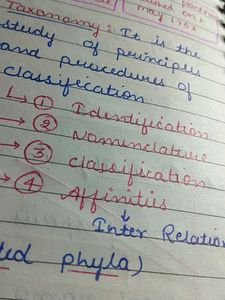 Taxonomy: It is the
study of principles
and procedures of
classification
↳ ① Identification
→ ② Nomenclature
→ ③ classification
→ ④ Affinities
↓
Inter Relation
ted phyla)
May 1753